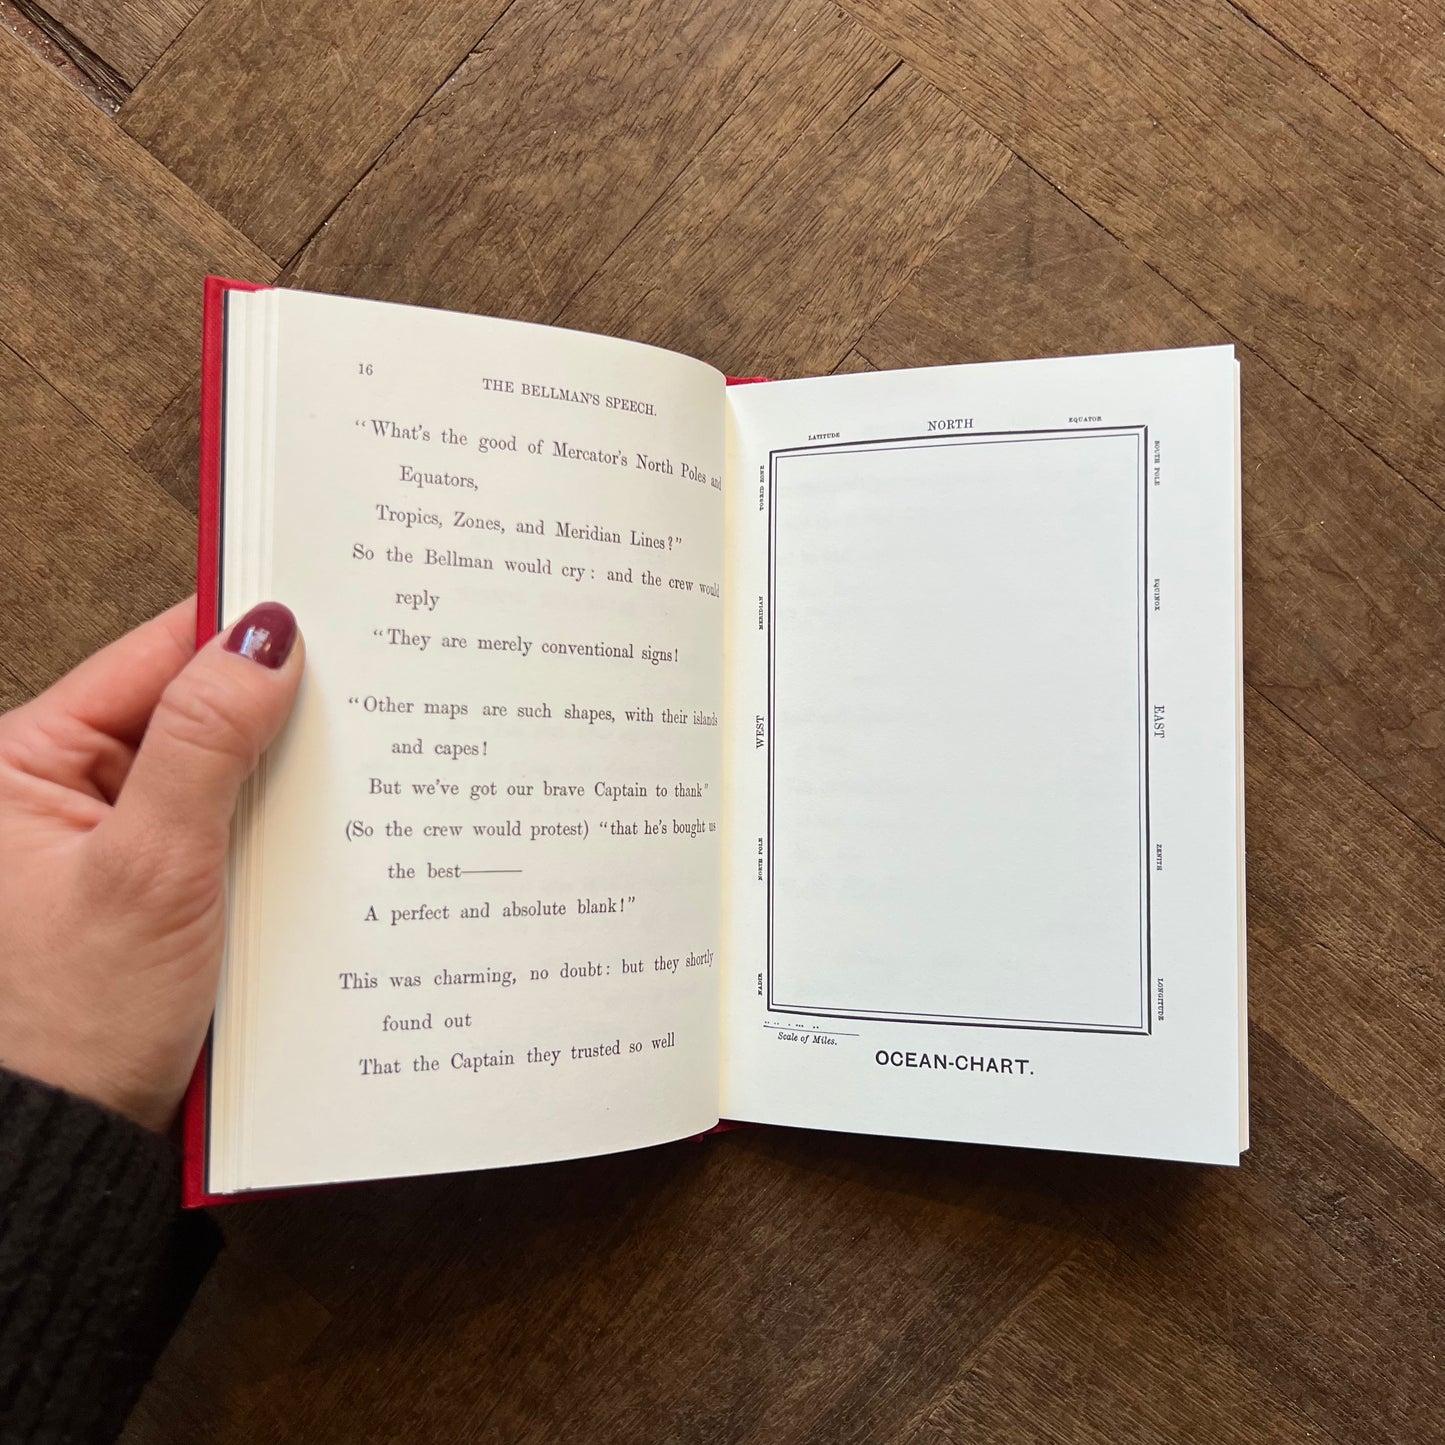 16
THE BELLMAN'S SPEECH.
“What's the good of Mercator's North Poles and
Equators,
Tropics, Zones, and Meridian Lines?”
So the Bellman would cry: and the crew would
reply
“They are merely conventional signs!
“Other maps are such shapes, with their islands
and capes!
But we've got our brave Captain to thank”
(So the crew would protest) “that he's bought us
the best——
A perfect and absolute blank!”
This was charming, no doubt: but they shortly
found out
That the Captain they trusted so well
LATITUDE
NORTH
EQUATOR
TORRID ZONE
MERIDIAN
WEST
NORTH POLE
NADIR
SOUTH POLE
EQUINOX
EAST
ZENITH
LONGITUDE
Scale of Miles.
OCEAN-CHART.